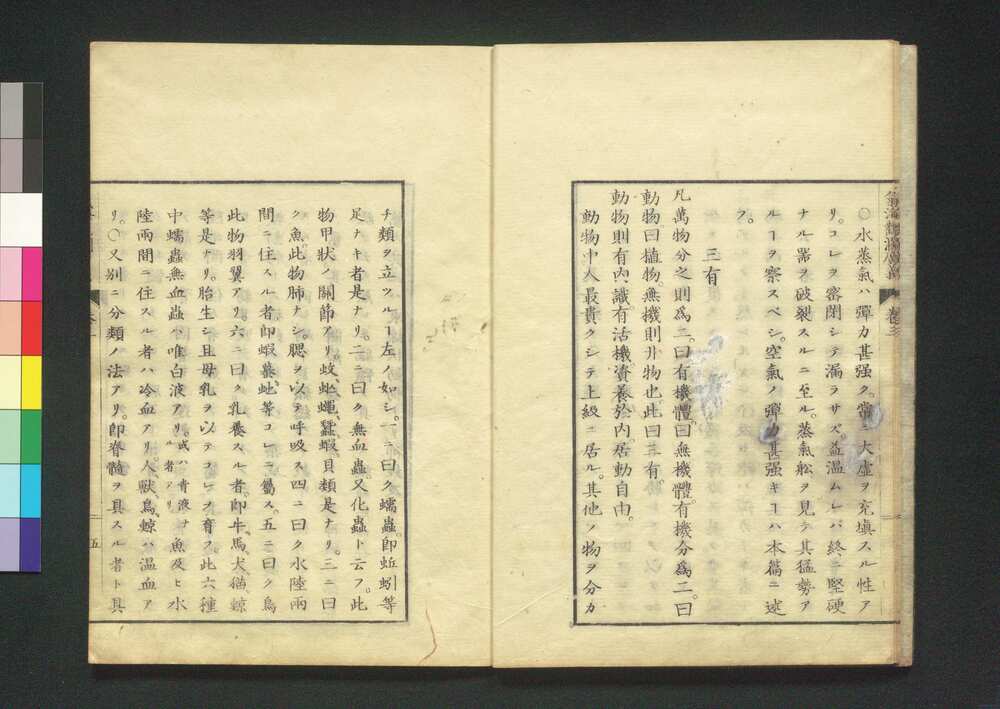 ○水蒸氣ハ彈力甚强ク。常ニ大虛ヲ充塡スル性ア
リ。コレヲ密閉シテ漏ラサズ。益温ムレバ終ニ堅硬
ナル器ヲ破裂スルニ至ル。蒸氣舩ヲ見テ其猛勢ア
ルヿヲ察スベシ。空氣ノ彈力甚强キヿハ本篇ニ述
フ。
三有
凡萬物分之則爲二。曰有機體。曰無機體。有機分爲二。曰
動物。曰植物。無機則卝物也。此曰三有。
動物則有内識有活機。資養於内。居動自由。
動物中人最貴クシテ上級ニ居ル。其他ノ物ヲ分カ
チ類ヲ立ツルヿ左ノ如シ。一ニ曰ク蠕蟲。卽蚯蚓等
足ナキ者是ナリ。二ニ曰ク無血蟲。又化蟲ト云フ。此
物甲狀ノ關節アリ。蚊、虻、蠅、蠶、蝦、貝類是ナリ。三ニ曰
ク魚此物肺ナシ。腮ヲ以テ呼吸ス四ニ曰ク水陸兩
間ニ住スル者卽蝦蟇、虵等コレニ屬ス。五ニ曰ク鳥
此物羽翼アリ六ニ曰ク乳養スル者。卽牛、馬、犬、猫、鯨
等是ナリ。胎生シ且母乳ヲ以テコレヲ育フ。此六種
中蠕蟲無血蟲ハ唯白液アリ。或ハ青液ナル者アリ。魚及ヒ水
陸兩間ニ住スル者ハ冷血アリ。人、獸、鳥、鯨ハ温血ア
リ。○又別ニ分類ノ法アリ。卽脊髓ヲ具スル者ト具
五